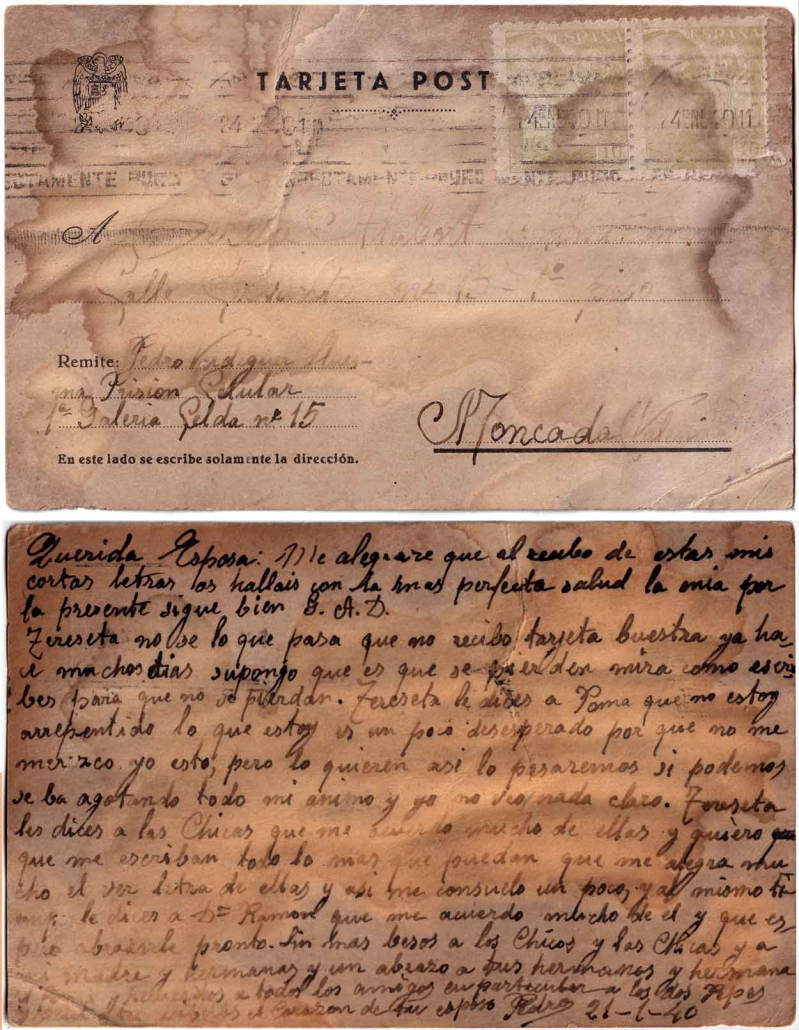 TARJETA POST
ESPAÑA ESPAÑA
24 ENE 40 11 24 ENE 40 11
A
Calle
Remite: Pedro Verdeguer
Prision Celular
1ª Galeria Celda nº 15
Moncada
En este lado se escribe solamente la dirección.
Querida Esposa: Me alegrare que al recibo de estas mis
cortas letras os hallais con la mas perfecta salud la mia por
la presente sigue bien G. A. D.
Tereseta no se lo que pasa que no recibo tarjeta buestra ya ha-
ce muchos dias supongo que es que se pierden mira como escri-
bes para que no se pierdan. Tereseta le dices a Poma que no estoy
arrepentido lo que estoy es un poco desesperado por que no me
merezco yo esto, pero lo quieren asi lo pasaremos si podemos
se ba agotando todo mi animo y yo no veo nada claro. Tereseta
les dices a las Chicas que me acuerdo mucho de ellas y quiero que
que me escriban todo lo mas que puedan que me alegra mu
cho el ver letra de ellas y asi me consuelo un poco, y al mismo ti
empo le dices a Dn Ramon que me acuerdo mucho de el y que es
pero abrazarle pronto. Sin mas besos a los Chicos y las Chicas y a
mi madre y hermanas y un abrazo a tus hermanos y hermana
y recuerdos a todos los amigos en particular a los dos Pepes
el corazon de tu esposo Pedro 21-1-40